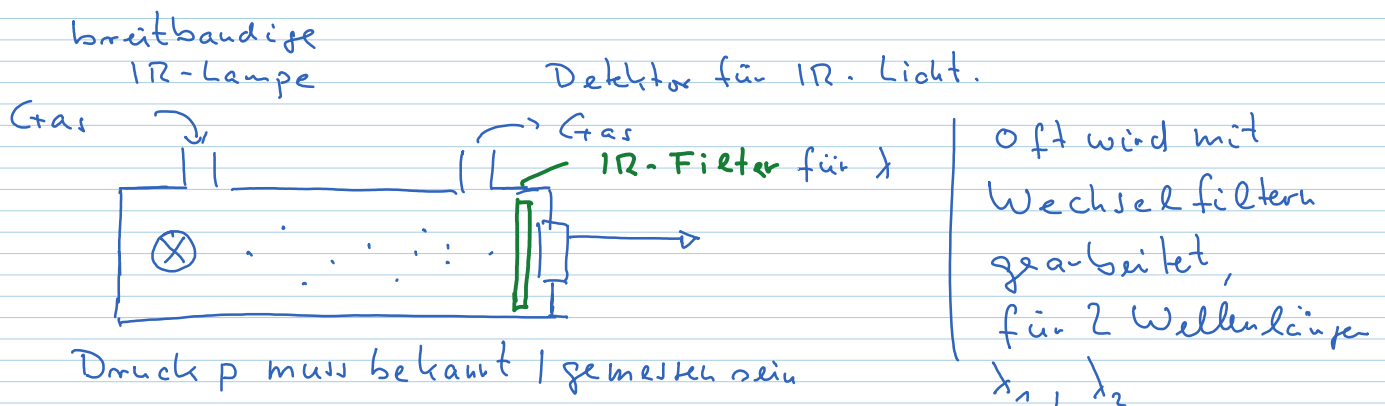 breitbandige
IR-Lampe
Detektor für IR-Licht.
Gas
Gas
IR-Filter für λ
Druck p muss bekannt / gemessen sein
Oft wird mit
Wechselfiltern
gearbeitet,
für 2 Wellenlängen
λ₁, λ₂